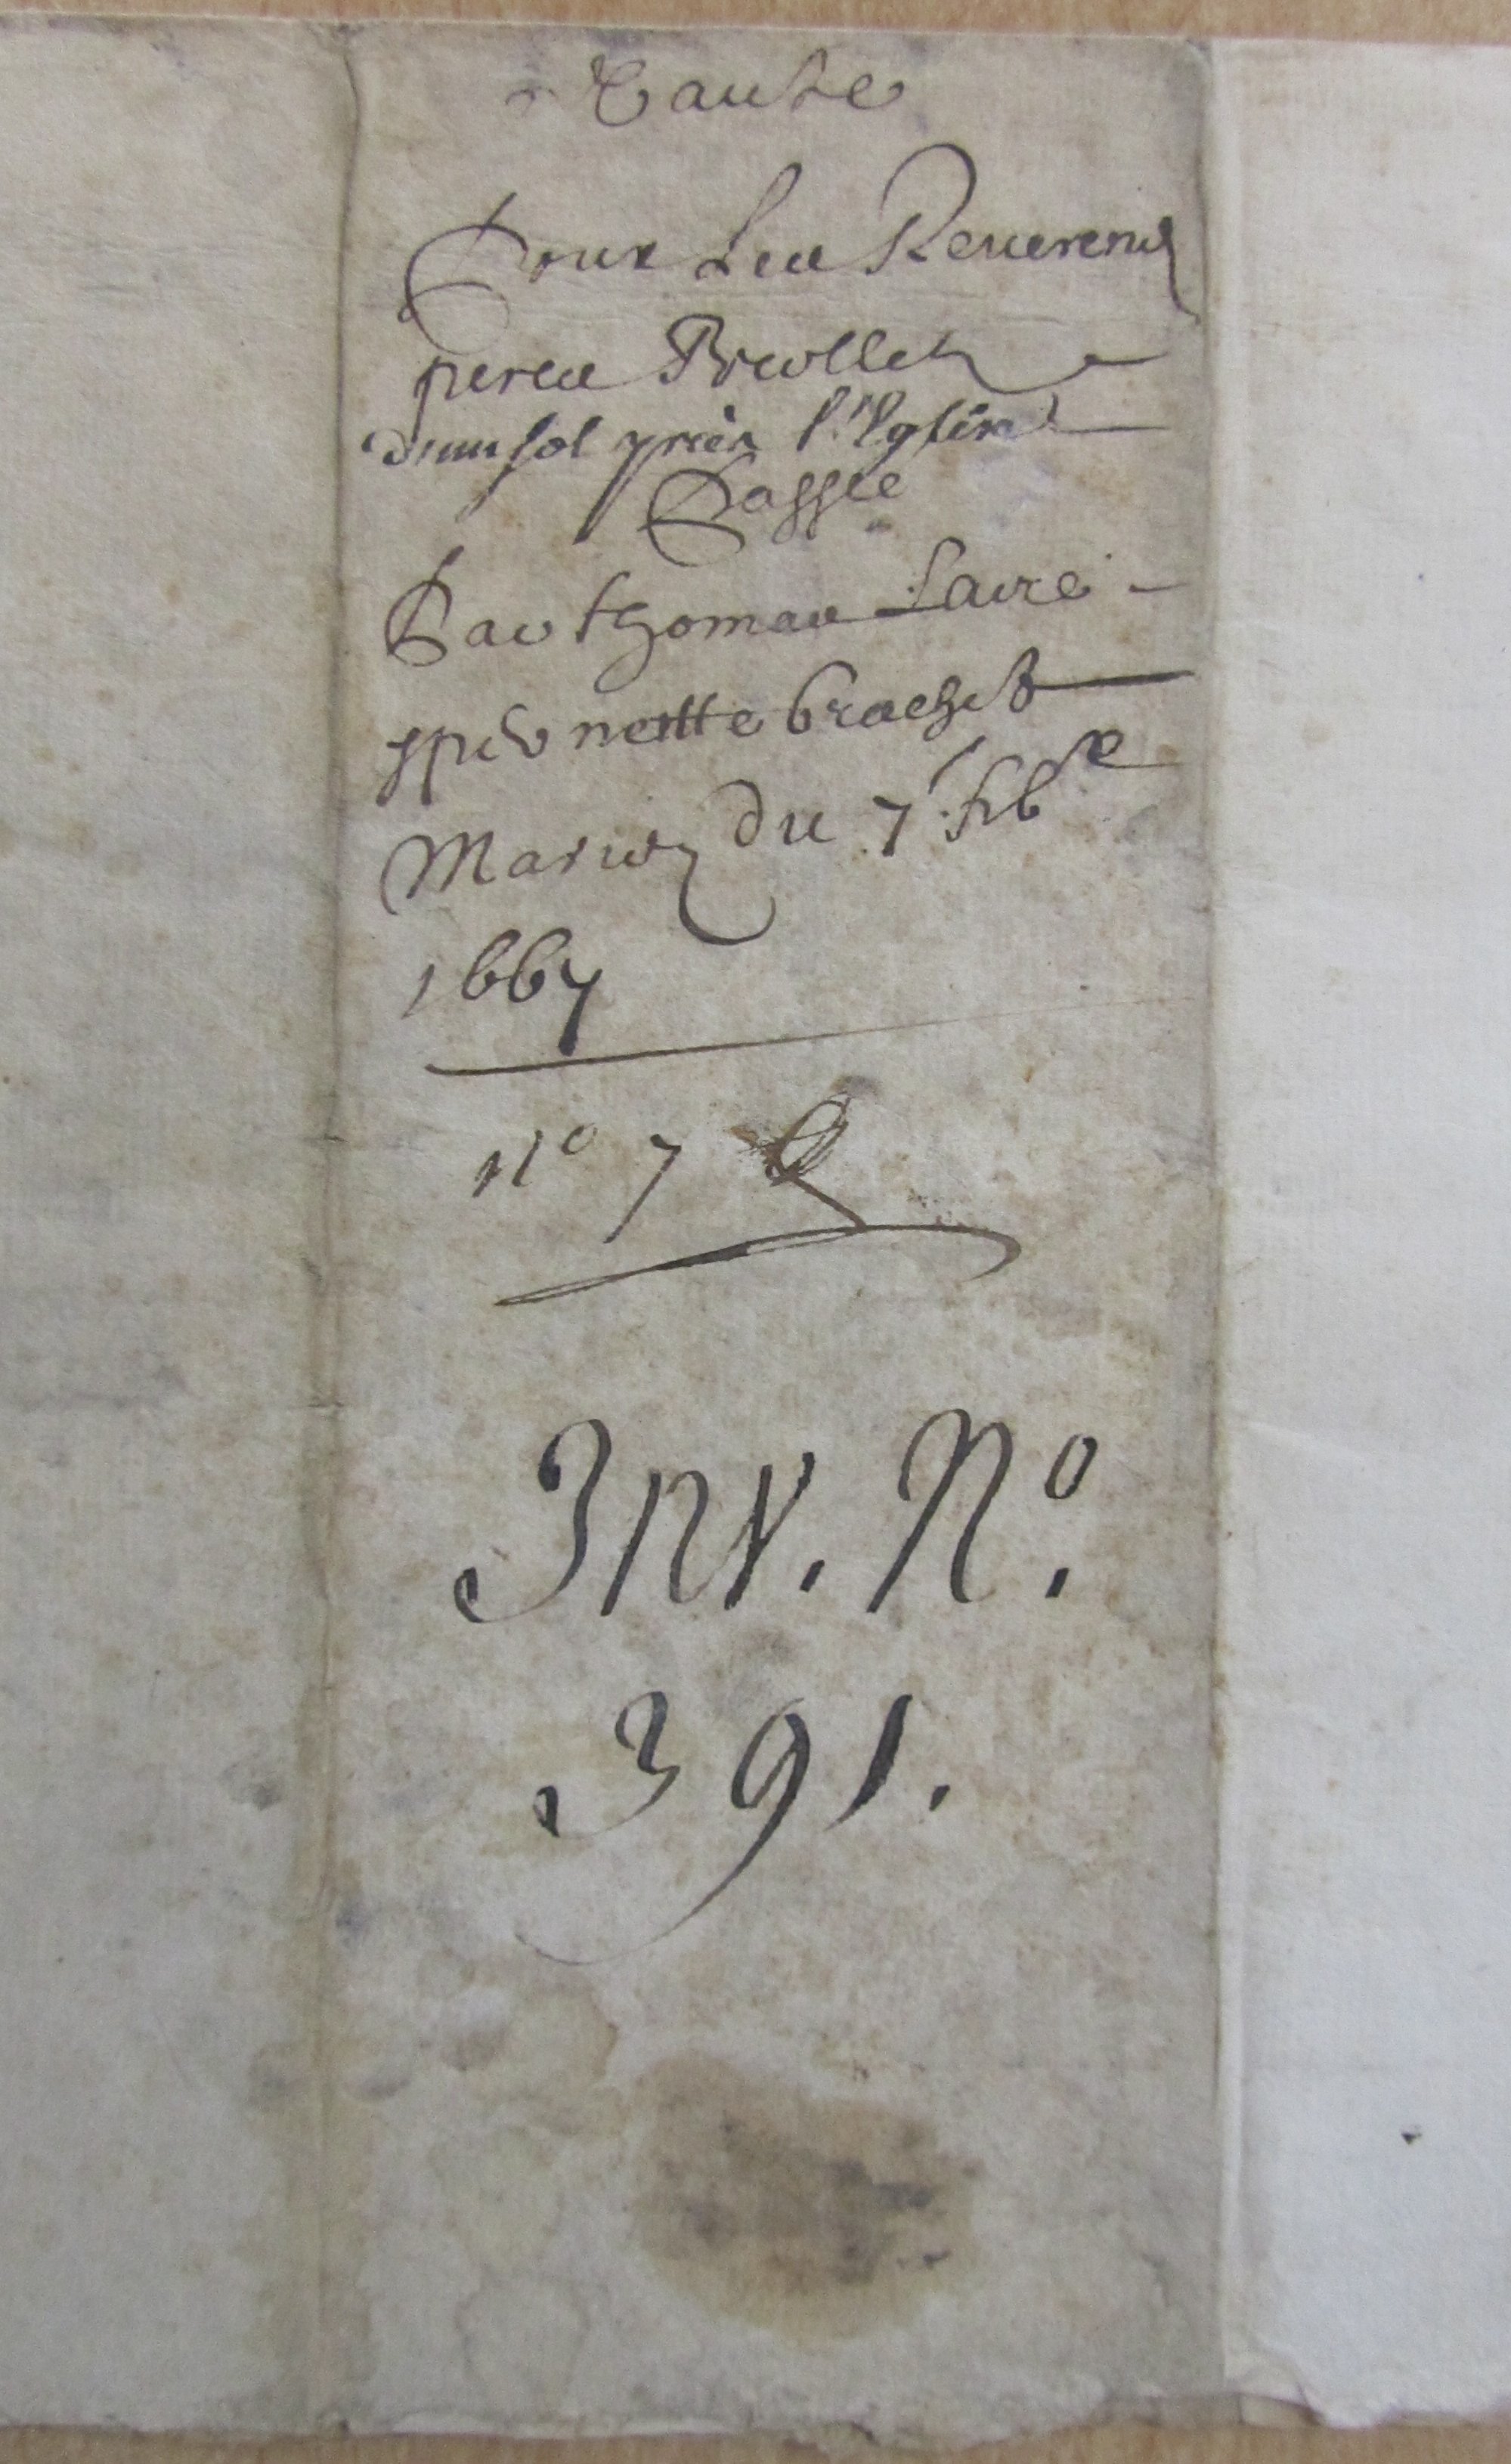 Vante
Pour Les Reverend
peres Recollet
d'un sol près l'Eglise
Passée
Par thomas Lavré
pernette brachet
Mariez du 7 feb^re
1667
N° 7
Inv. N°.
391.